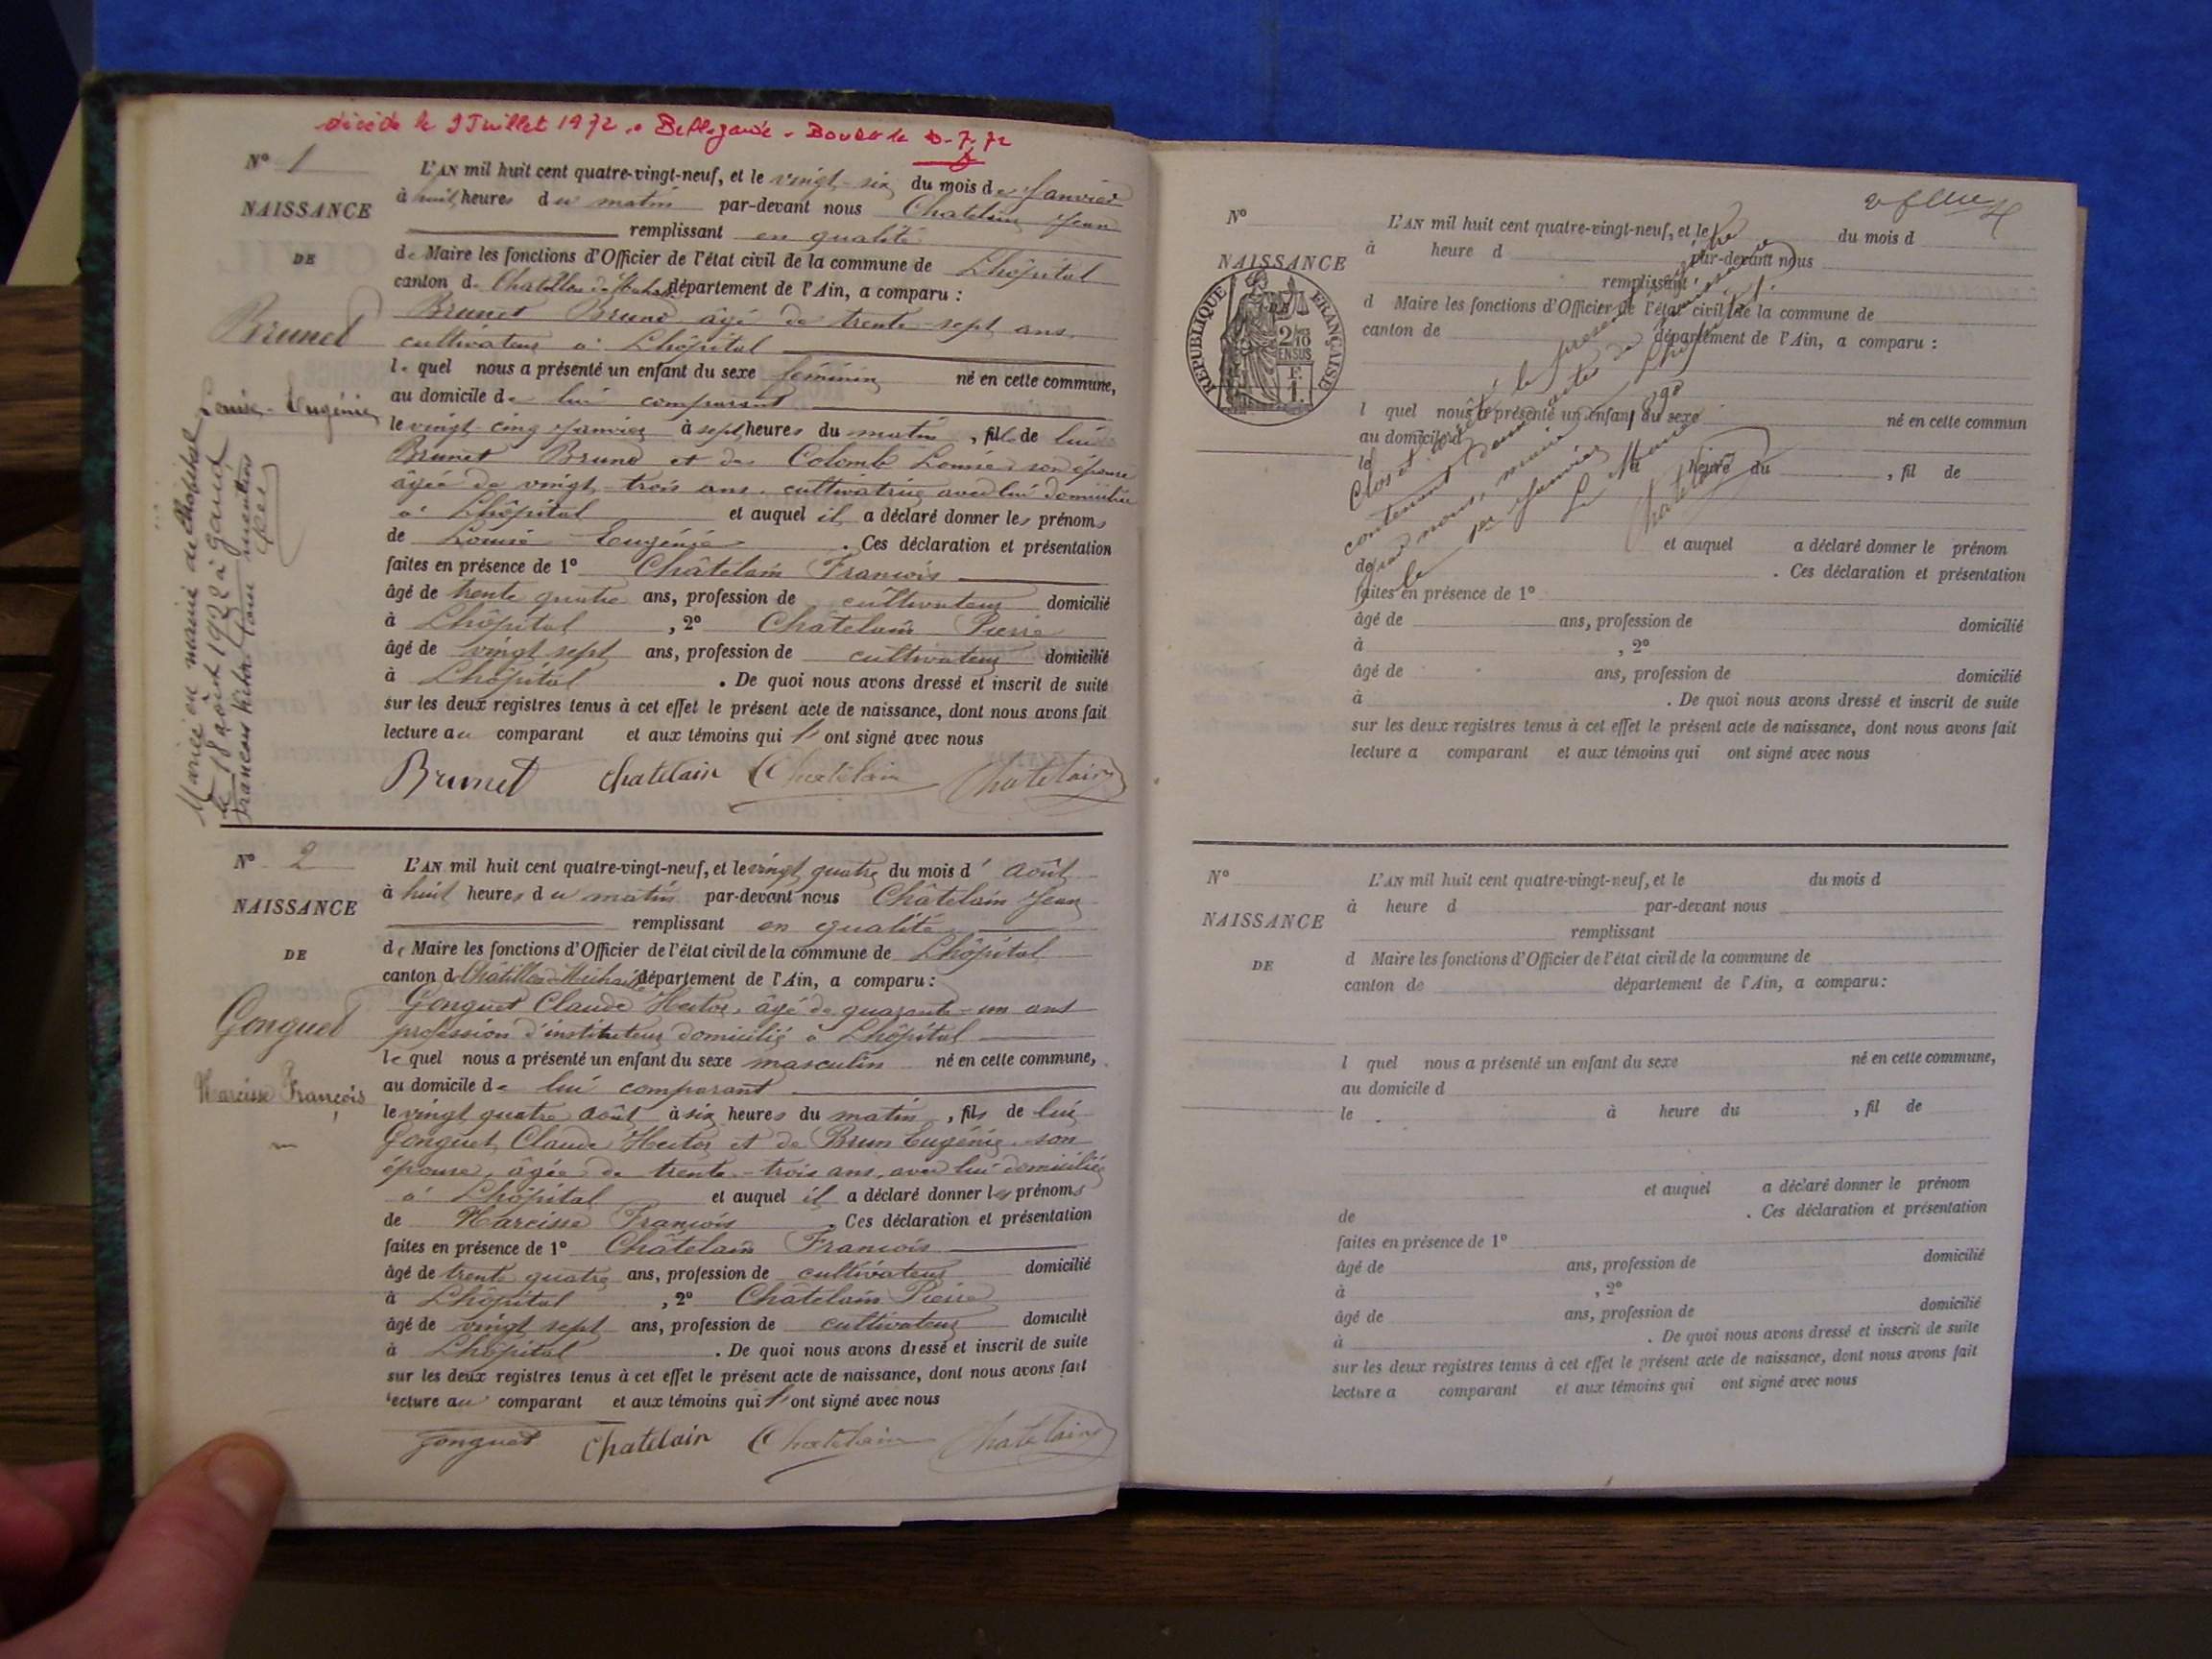 décédé le 2 Juillet 1972 à Bellegarde
N° 1
NAISSANCE
DE
Brunet
Louise-Eugénie
Mariée en mairie de Lhôpital
le 18 août 1922 à
L'AN mil huit cent quatre-vingt-neuf, et le vingt-six du mois de Janvier
à huit heures du matin par-devant nous Chatelain Jean
remplissant en qualité
de Maire les fonctions d'Officier de l'état civil de la commune de Lhôpital
canton de Chatillon de Michaille département de l'Ain, a comparu :
Brunet Bruno âgé de trente-sept ans
cultivateur à Lhôpital
lequel nous a présenté un enfant du sexe féminin né en cette commune,
au domicile de lui comparant
le vingt-cinq Janvier à sept heures du matin, fille de lui
Brunet Bruno et de Colomb Louise son épouse
âgée de vingt-trois ans, cultivatrice avec lui domiciliée
à Lhôpital et auquel il a déclaré donner les prénoms
de Louise-Eugénie. Ces déclaration et présentation
faites en présence de 1° Châtelain François
âgé de trente quatre ans, profession de cultivateur domicilié
à Lhôpital, 2° Châtelain Pierre
âgé de vingt sept ans, profession de cultivateur domicilié
à Lhôpital. De quoi nous avons dressé et inscrit de suite
sur les deux registres tenus à cet effet le présent acte de naissance, dont nous avons fait
lecture au comparant et aux témoins qui l'ont signé avec nous
Brunet Chatelain Chatelain Chatelain
N° 2
NAISSANCE
DE
Gonguet
Narcisse François
L'AN mil huit cent quatre-vingt-neuf, et le vingt quatre du mois d'août
à huit heures du matin par-devant nous Châtelain Jean
remplissant en qualité
de Maire les fonctions d'Officier de l'état civil de la commune de Lhôpital
canton de Châtillon-Michaille département de l'Ain, a comparu :
Gonguet Claude Hector, âgé de quarante-un ans
profession d'instituteur domicilié à Lhôpital
lequel nous a présenté un enfant du sexe masculin né en cette commune,
au domicile de lui comparant
le vingt quatre août à six heures du matin, fils de lui
Gonguet Claude Hector et de Brun Eugénie son
épouse, âgée de trente-trois ans, avec lui domiciliée
à Lhôpital et auquel il a déclaré donner les prénoms
de Narcisse François. Ces déclaration et présentation
faites en présence de 1° Châtelain François
âgé de trente quatre ans, profession de cultivateur domicilié
à Lhôpital, 2° Châtelain Pierre
âgé de vingt sept ans, profession de cultivateur domicilié
à Lhôpital. De quoi nous avons dressé et inscrit de suite
sur les deux registres tenus à cet effet le présent acte de naissance, dont nous avons fait
lecture au comparant et aux témoins qui l'ont signé avec nous
Gonguet Chatelain Chatelain Chatelain
N°
NAISSANCE
RÉPUBLIQUE FRANÇAISE
2/10
EN SUS
F.
1.
L'AN mil huit cent quatre-vingt-neuf, et le du mois d
à heure d par-devant nous
remplissant
d Maire les fonctions d'Officier de l'état civil de la commune de
canton de département de l'Ain, a comparu :
l quel nous a présenté un enfant du sexe né en cette commun
au domicile d
le heure du , fil de
et auquel a déclaré donner le prénom
de . Ces déclaration et présentation
faites en présence de 1°
âgé de ans, profession de domicilié
à , 2°
âgé de ans, profession de domicilié
à . De quoi nous avons dressé et inscrit de suite
sur les deux registres tenus à cet effet le présent acte de naissance, dont nous avons fait
lecture a comparant et aux témoins qui ont signé avec nous
Clos et arrêté le présent registre
contenant deux actes de naissance
par nous, maire de Lhôpital
le 1er Janvier 1890
Le Maire
Chatelain
N°
NAISSANCE
DE
L'AN mil huit cent quatre-vingt-neuf, et le du mois d
à heure d par-devant nous
remplissant
d Maire les fonctions d'Officier de l'état civil de la commune de
canton de département de l'Ain, a comparu :
l quel nous a présenté un enfant du sexe né en cette commune,
au domicile d
le à heure du , fil de
et auquel a déclaré donner le prénom
de . Ces déclaration et présentation
faites en présence de 1°
âgé de ans, profession de domicilié
à , 2°
âgé de ans, profession de domicilié
à . De quoi nous avons dressé et inscrit de suite
sur les deux registres tenus à cet effet le présent acte de naissance, dont nous avons fait
lecture a comparant et aux témoins qui ont signé avec nous